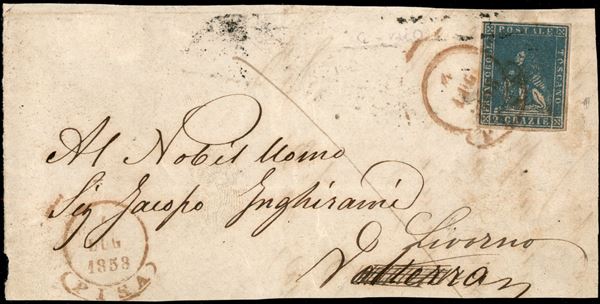 FRANCOBOLLO POSTALE TOSCANO
2 CRAZIE
LUG
Al Nobil Uomo
Sig Jacopo Inghirami
Livorno
Volterra
LUG
1853
PISA